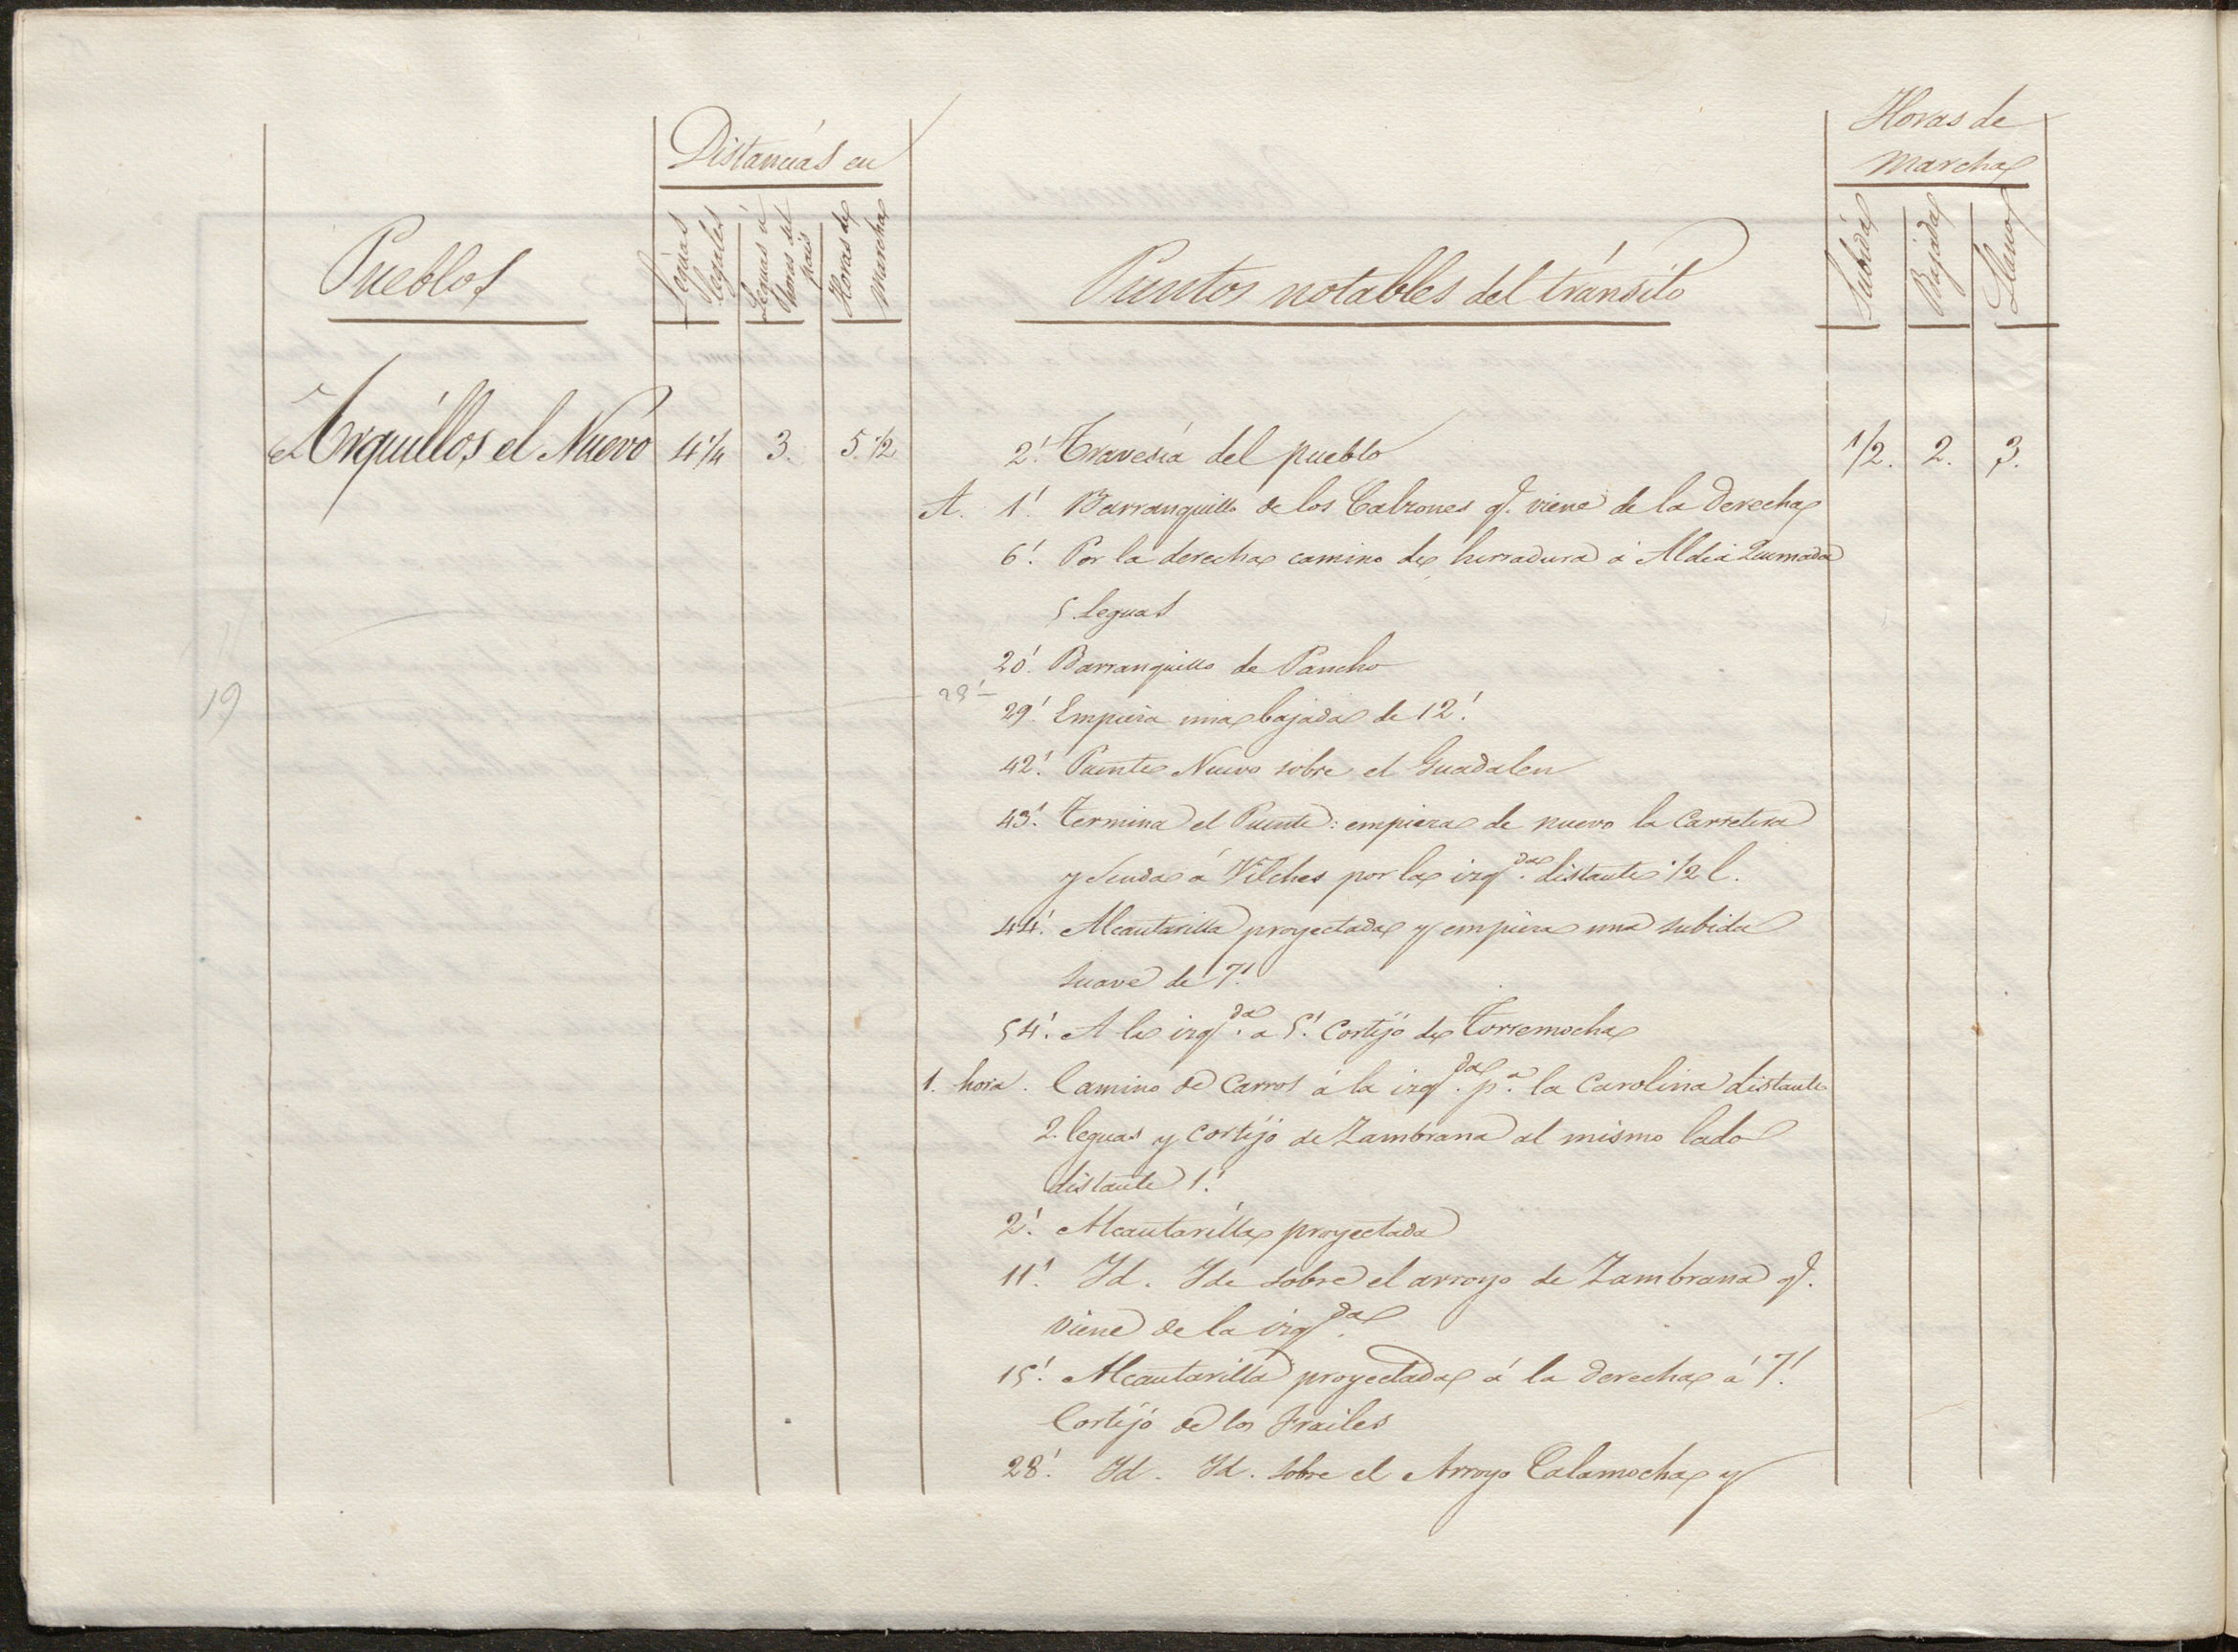 Horas de
Distancias en
marcha
Pueblos
Leguas legales
Leguas ú horas del pais
Horas de marcha
Puntos notables del tránsito
Subida
Bajada
Llano
Arquillos el Nuevo 4 1/4 3. 5 1/2 2'. Travesía del pueblo 1/2. 2. 3.
A. 1'. Barranquillo de los Calzones q.e viene de la derecha
6'. Por la derecha camino de herradura á Aldea Quemada
5 leguas
20'. Barranquillo de Pancho
29'. Empieza una bajada de 12'.
42'. Puente Nuevo sobre el Guadalen
43'. Termina el Puente: empieza de nuevo la Carretera
y senda á Vilches por la izq.da distante 1/2 l.
44'. Alcantarilla proyectada y empieza una subida
suave de 7'.
54'. A la izq.da a 5'. Cortijo de Torremocha
1. hora. Camino de Carros á la izq.da p.a la Carolina distante
2. leguas y cortijo de Zambrana al mismo lado
distante 1'.
2'. Alcantarilla proyectada
11'. Id. Id. sobre el arroyo de Zambrana q.e
viene de la izq.da
15'. Alcantarilla proyectada á la derecha á 7'.
Cortijo de los Frailes
28'. Id. Id. sobre el Arroyo Calamocha y
19